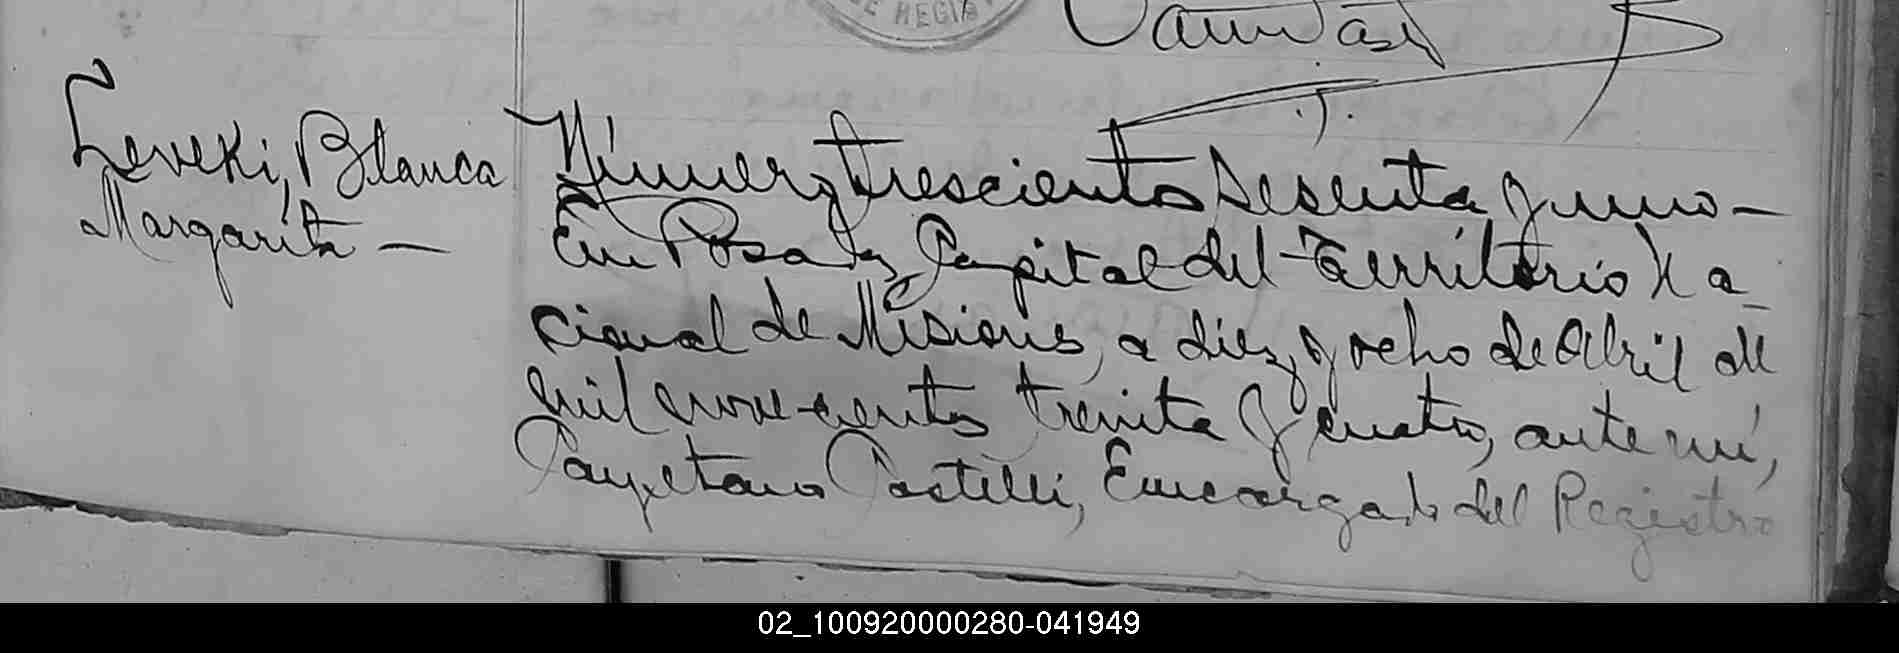 DE REGIS
Zeveki, Blanca
Margarita —
Número trescientos sesenta y uno —
En Posadas, Capital del Territorio Na-
cional de Misiones, a diez y ocho de Abril de
mil novecientos treinta y cuatro, ante mí,
Cayetano Castelli, Encargado del Registro
02_100920000280-041949